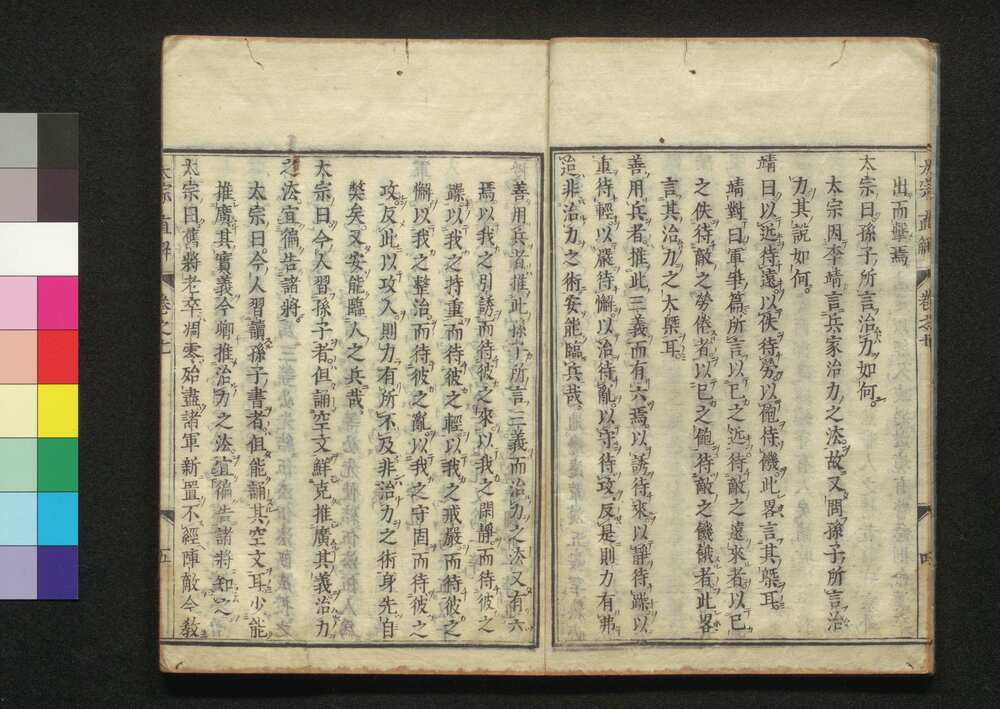 出而擊焉
太宗曰孫子所言治力如何。
太宗因李靖言兵家治力之法故又問孫子所言治
力其說如何。
靖曰以近待遠以佚待勞以飽待饑此畧言其槩耳
靖對曰軍爭篇所言以已之近待敵之遠來者以已
之佚待敵之勞倦者以已之飽待敵之饑餓者此畧
言其治力之大槩耳
善用兵者推此三義而有六焉以誘待來以靜待躁以
重待輕以嚴待懈以治待亂以守待攻反是則力有弗
迨非治力之術安能臨兵哉。
善用兵者推此孫子所言三義而治力之法又有六
焉以我之引誘而待彼之來以我之閑靜而待彼之
躁以我之持重而待彼之輕以我之戒嚴而待彼之
懈以我之整治而待彼之亂以我之守固而待彼之
攻反此以攻入則力有所不及非治力之術身先自
獘矣又安能臨人之兵哉
太宗曰今人習孫子者但誦空文鮮克推廣其義治力
之法宜徧告諸將。
太宗曰今人習讀孫子書者但能誦其空文耳少能
推廣其實義今卿推治力之法宜徧告諸將知之
太宗曰舊將老卒凋零殆盡諸軍新置不經陣敵今敎
卷之七
五